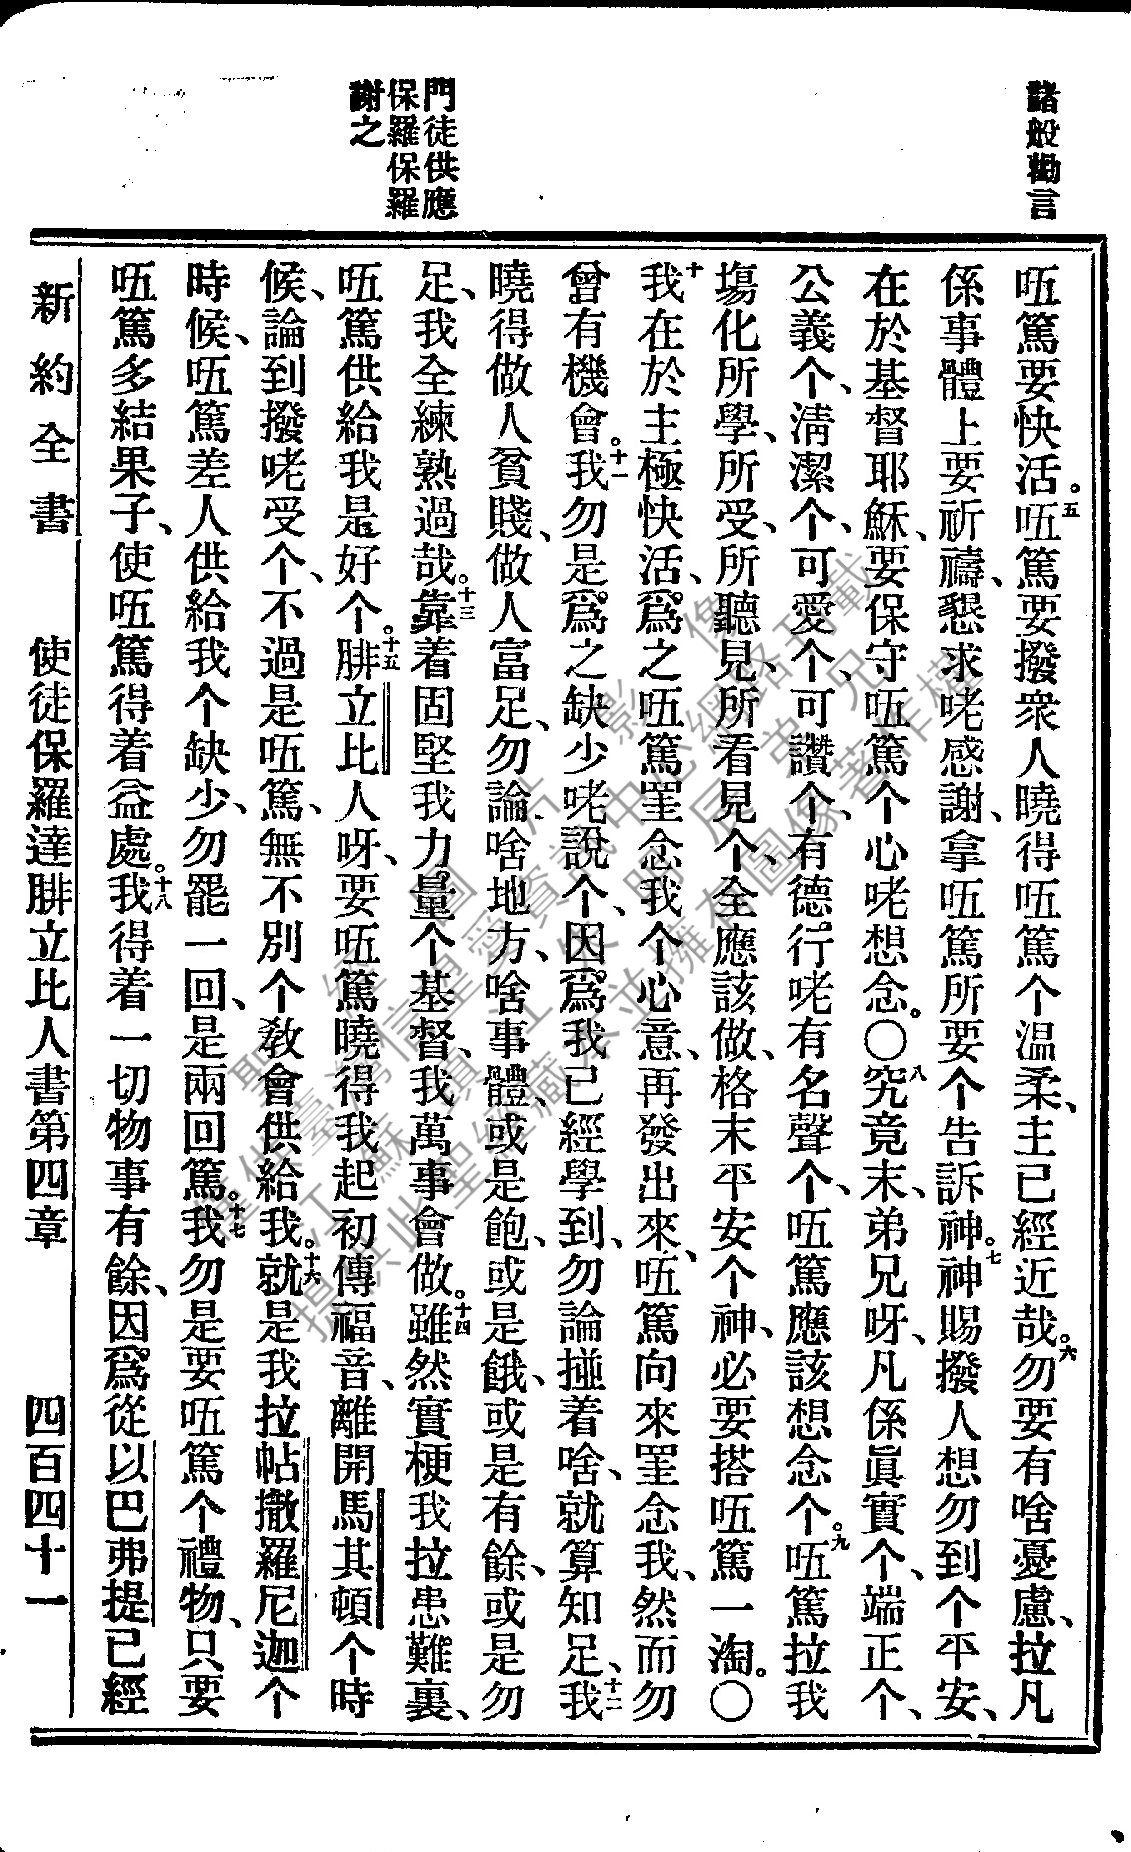 諸般勸言
門徒供應
保羅保羅
謝之
㕶篤要快活。五㕶篤要撥衆人曉得㕶篤个温柔、主已經近哉。六勿要有啥憂慮、拉凡
係事體上要祈禱、懇求咾感謝、拿㕶篤所要个告訴神。七神賜撥人想勿到个平安、
在於基督耶穌、要保守㕶篤个心咾想念。〇八究竟末、弟兄呀、凡係眞實个、端正个、
公義个、淸潔个、可愛个、可讚个、有德行咾有名聲个、㕶篤應該想念个。九㕶篤拉我
塲化所學、所受、所聽見、所看見个、全應該做、格末平安个神、必要搭㕶篤一淘。〇
十我在於主極快活、爲之㕶篤罣念我个心意、再發出來、㕶篤向來罣念我、然而勿
曾有機會。十一我勿是爲之缺少咾說个、因爲我已經學到、勿論撞着啥、就算知足、十二我
曉得做人貧賤、做人富足、勿論啥地方、啥事體、或是飽、或是餓、或是有餘、或是勿
足、我全練熟過哉。十三靠着固堅我力量个基督、我萬事會做。十四雖然實梗我拉患難裏、
㕶篤供給我是好个。十五腓立比人呀、要㕶篤曉得我起初傳福音、離開馬其頓个時
候、論到撥咾受个、不過是㕶篤、無不別个敎會供給我。十六就是我拉帖撒羅尼迦个
時候、㕶篤差人供給我个缺少、勿罷一回、是兩回篤。十七我勿是要㕶篤个禮物、只要
㕶篤多結果子、使㕶篤得着益處。十八我得着一切物事有餘、因爲從以巴弗提已經
新約全書 使徒保羅達腓立比人書第四章 四百四十一